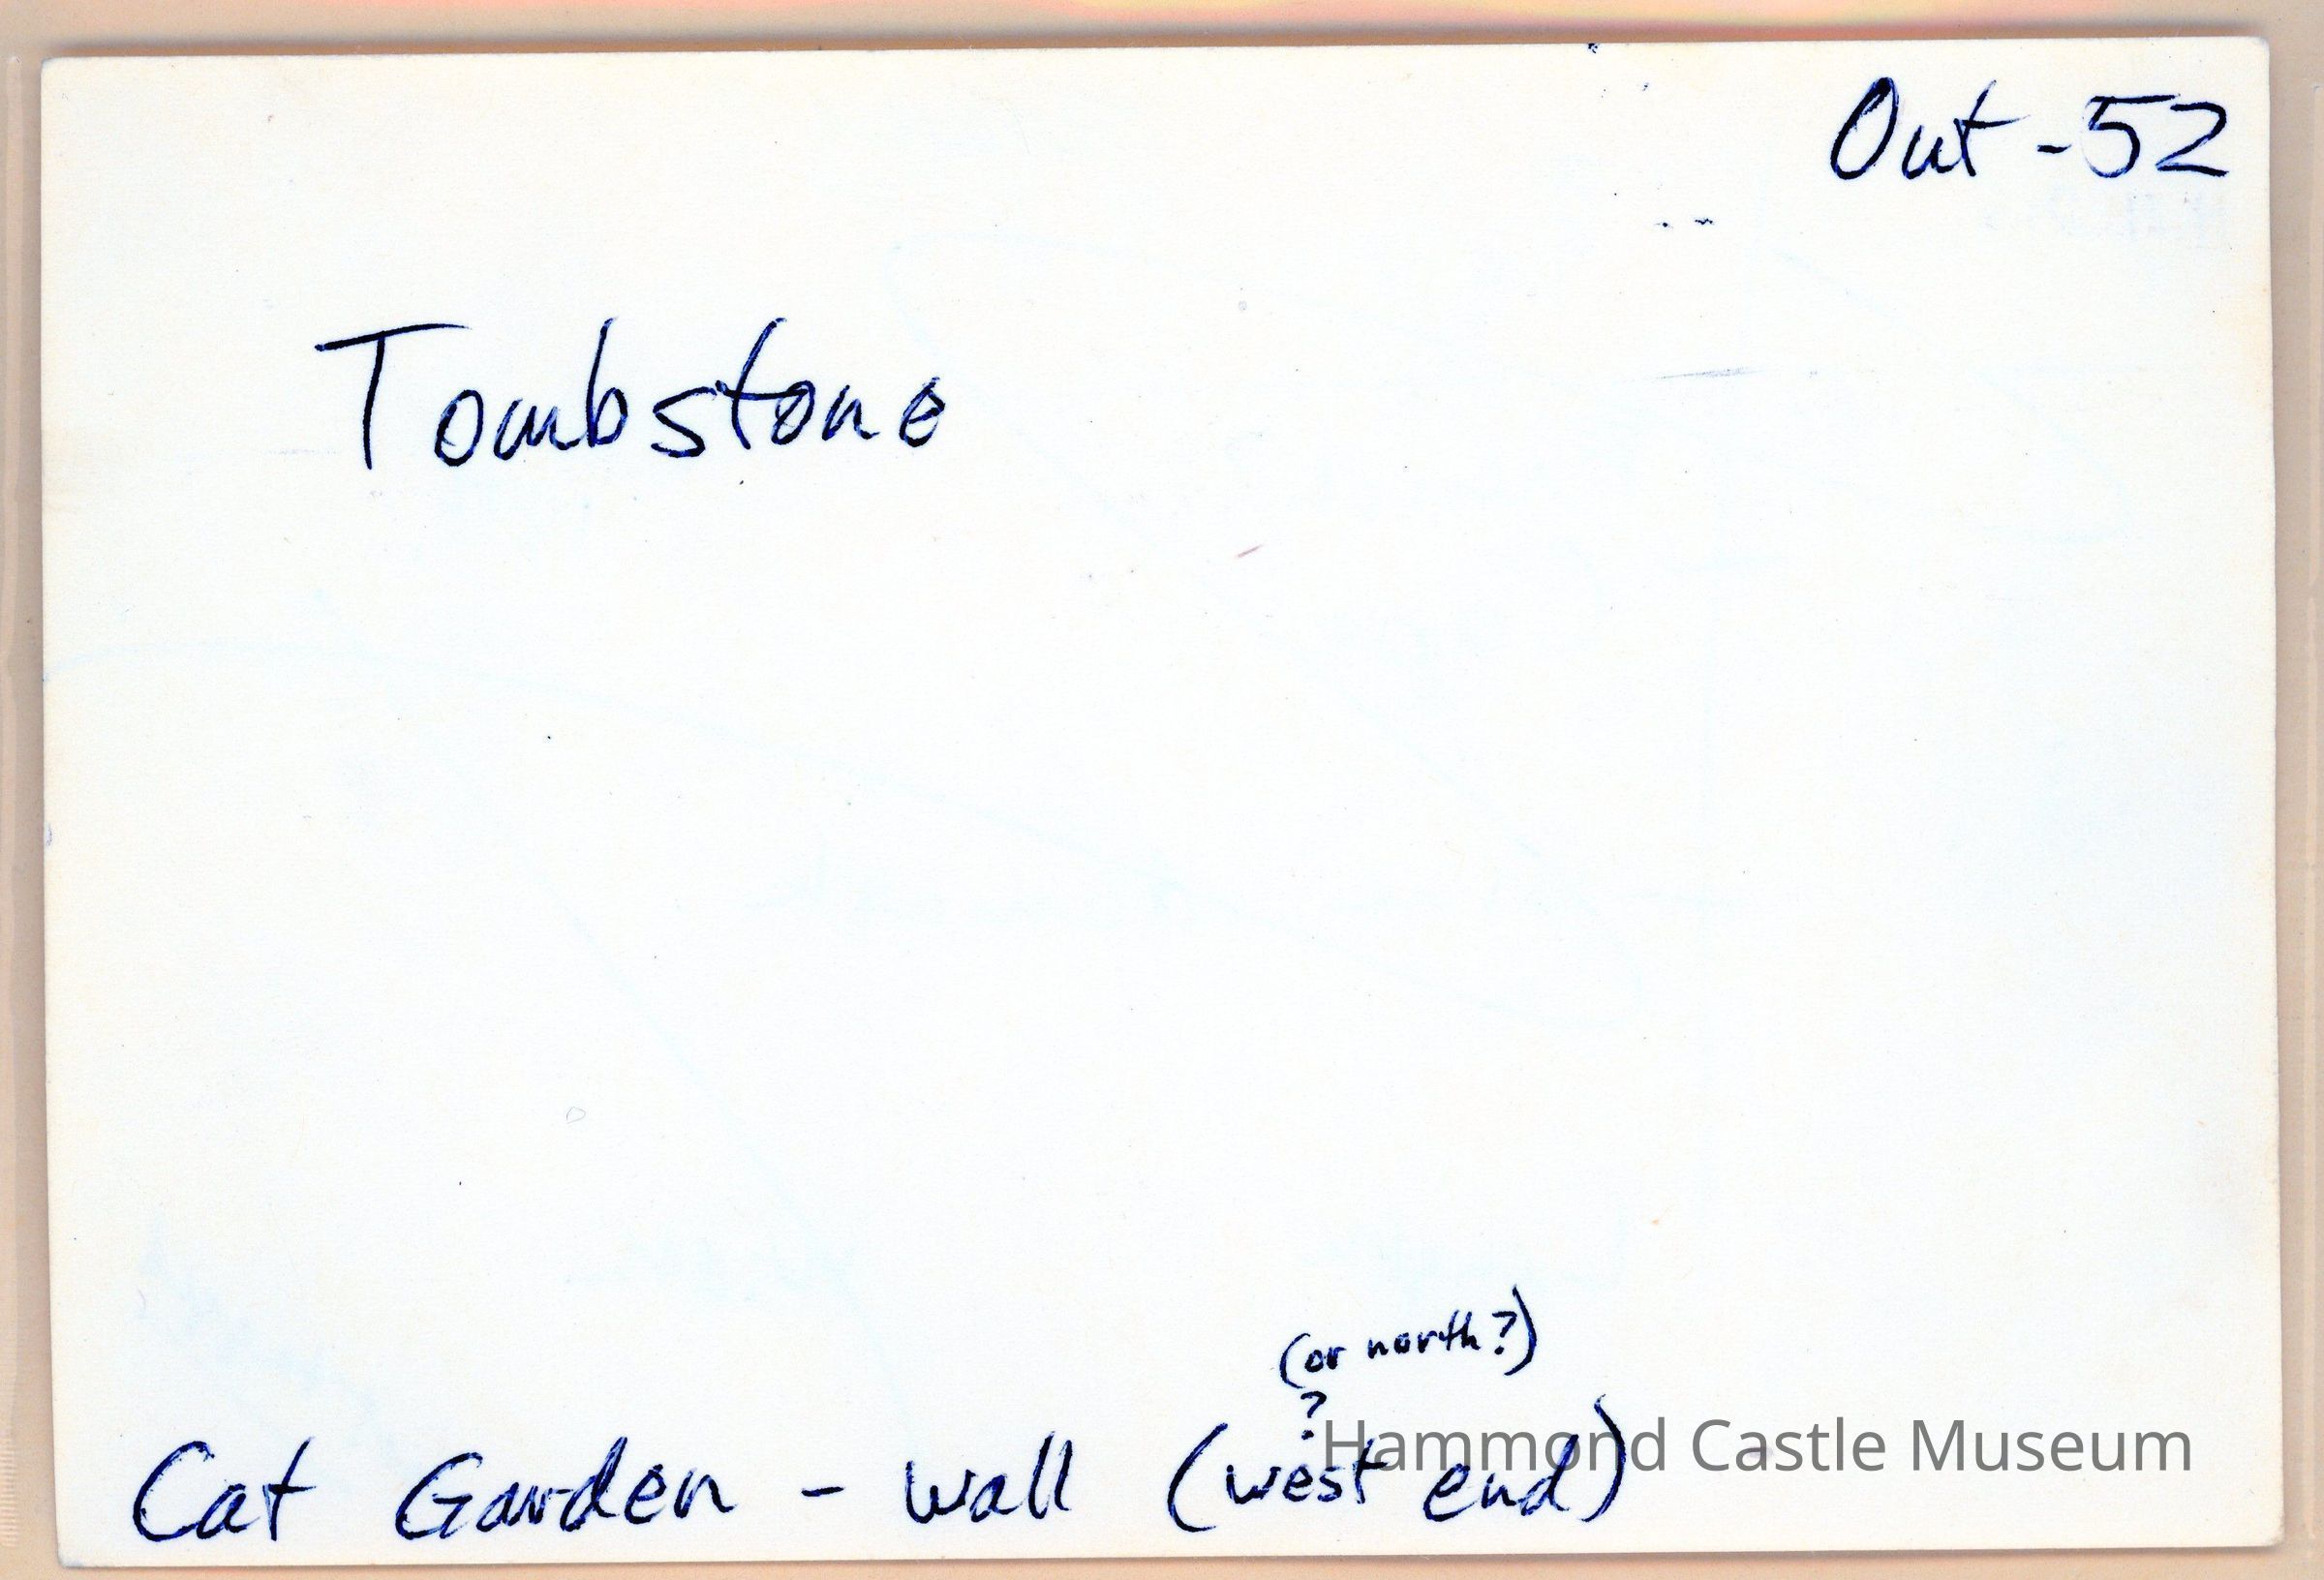 Out-52
Tombstone
(or north?)
?
Cat Garden - wall (west end)
Hammond Castle Museum